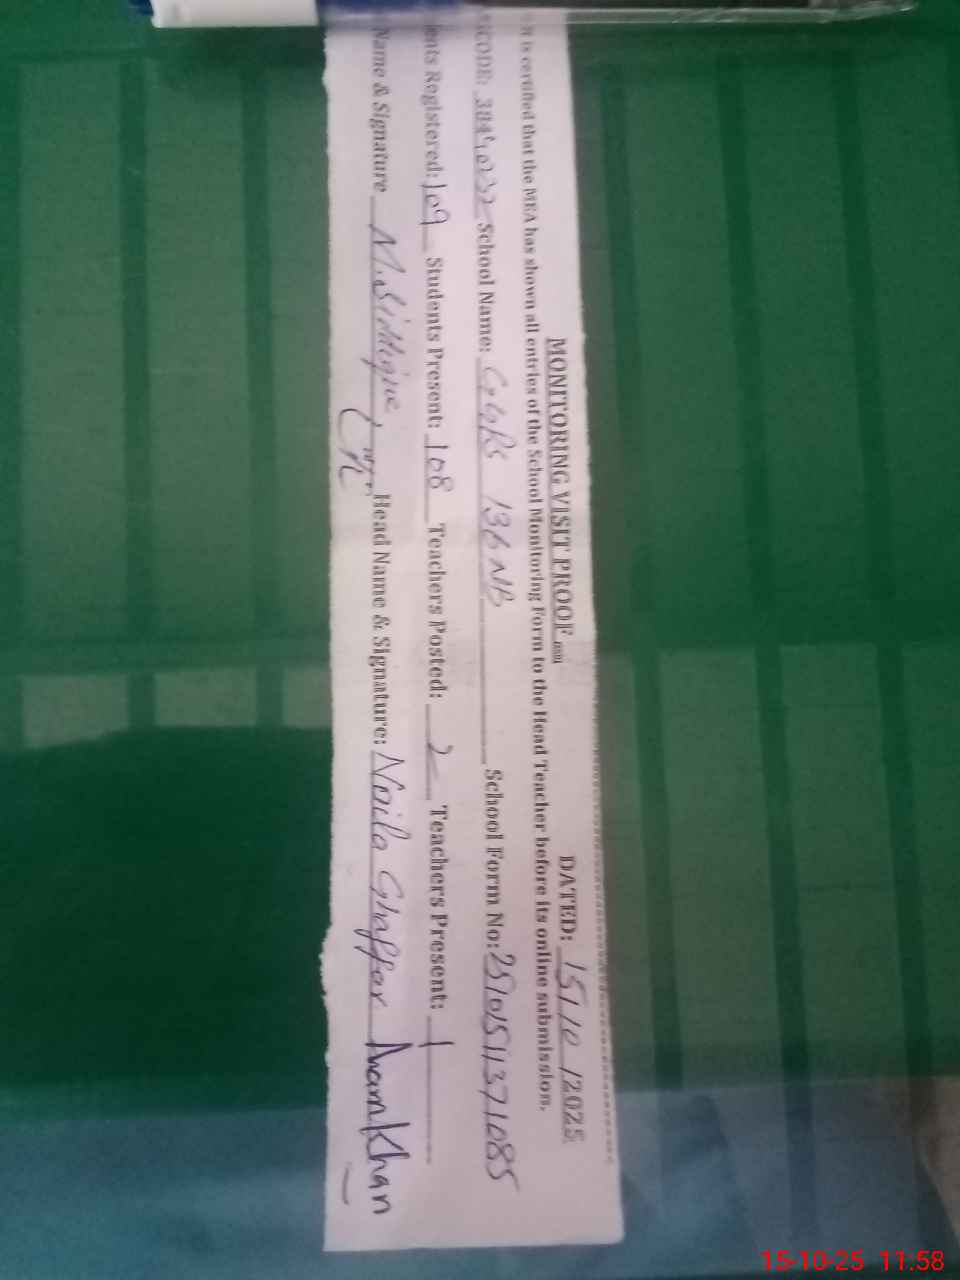 MONITORING VISIT PROOF DATED: 15/10/2025
It is certified that the MEA has shown all entries of the School Monitoring Form to the Head Teacher before its online submission.
SCODE: School Name: GGPS 136NB School Form No: 2510151371085
ents Registered: 109 Students Present: 108 Teachers Posted: 2 Teachers Present: 1
Name & Signature M. Siddique, Head Name & Signature: Naila Ghaffar Anam Khan
15-10-25 11.58